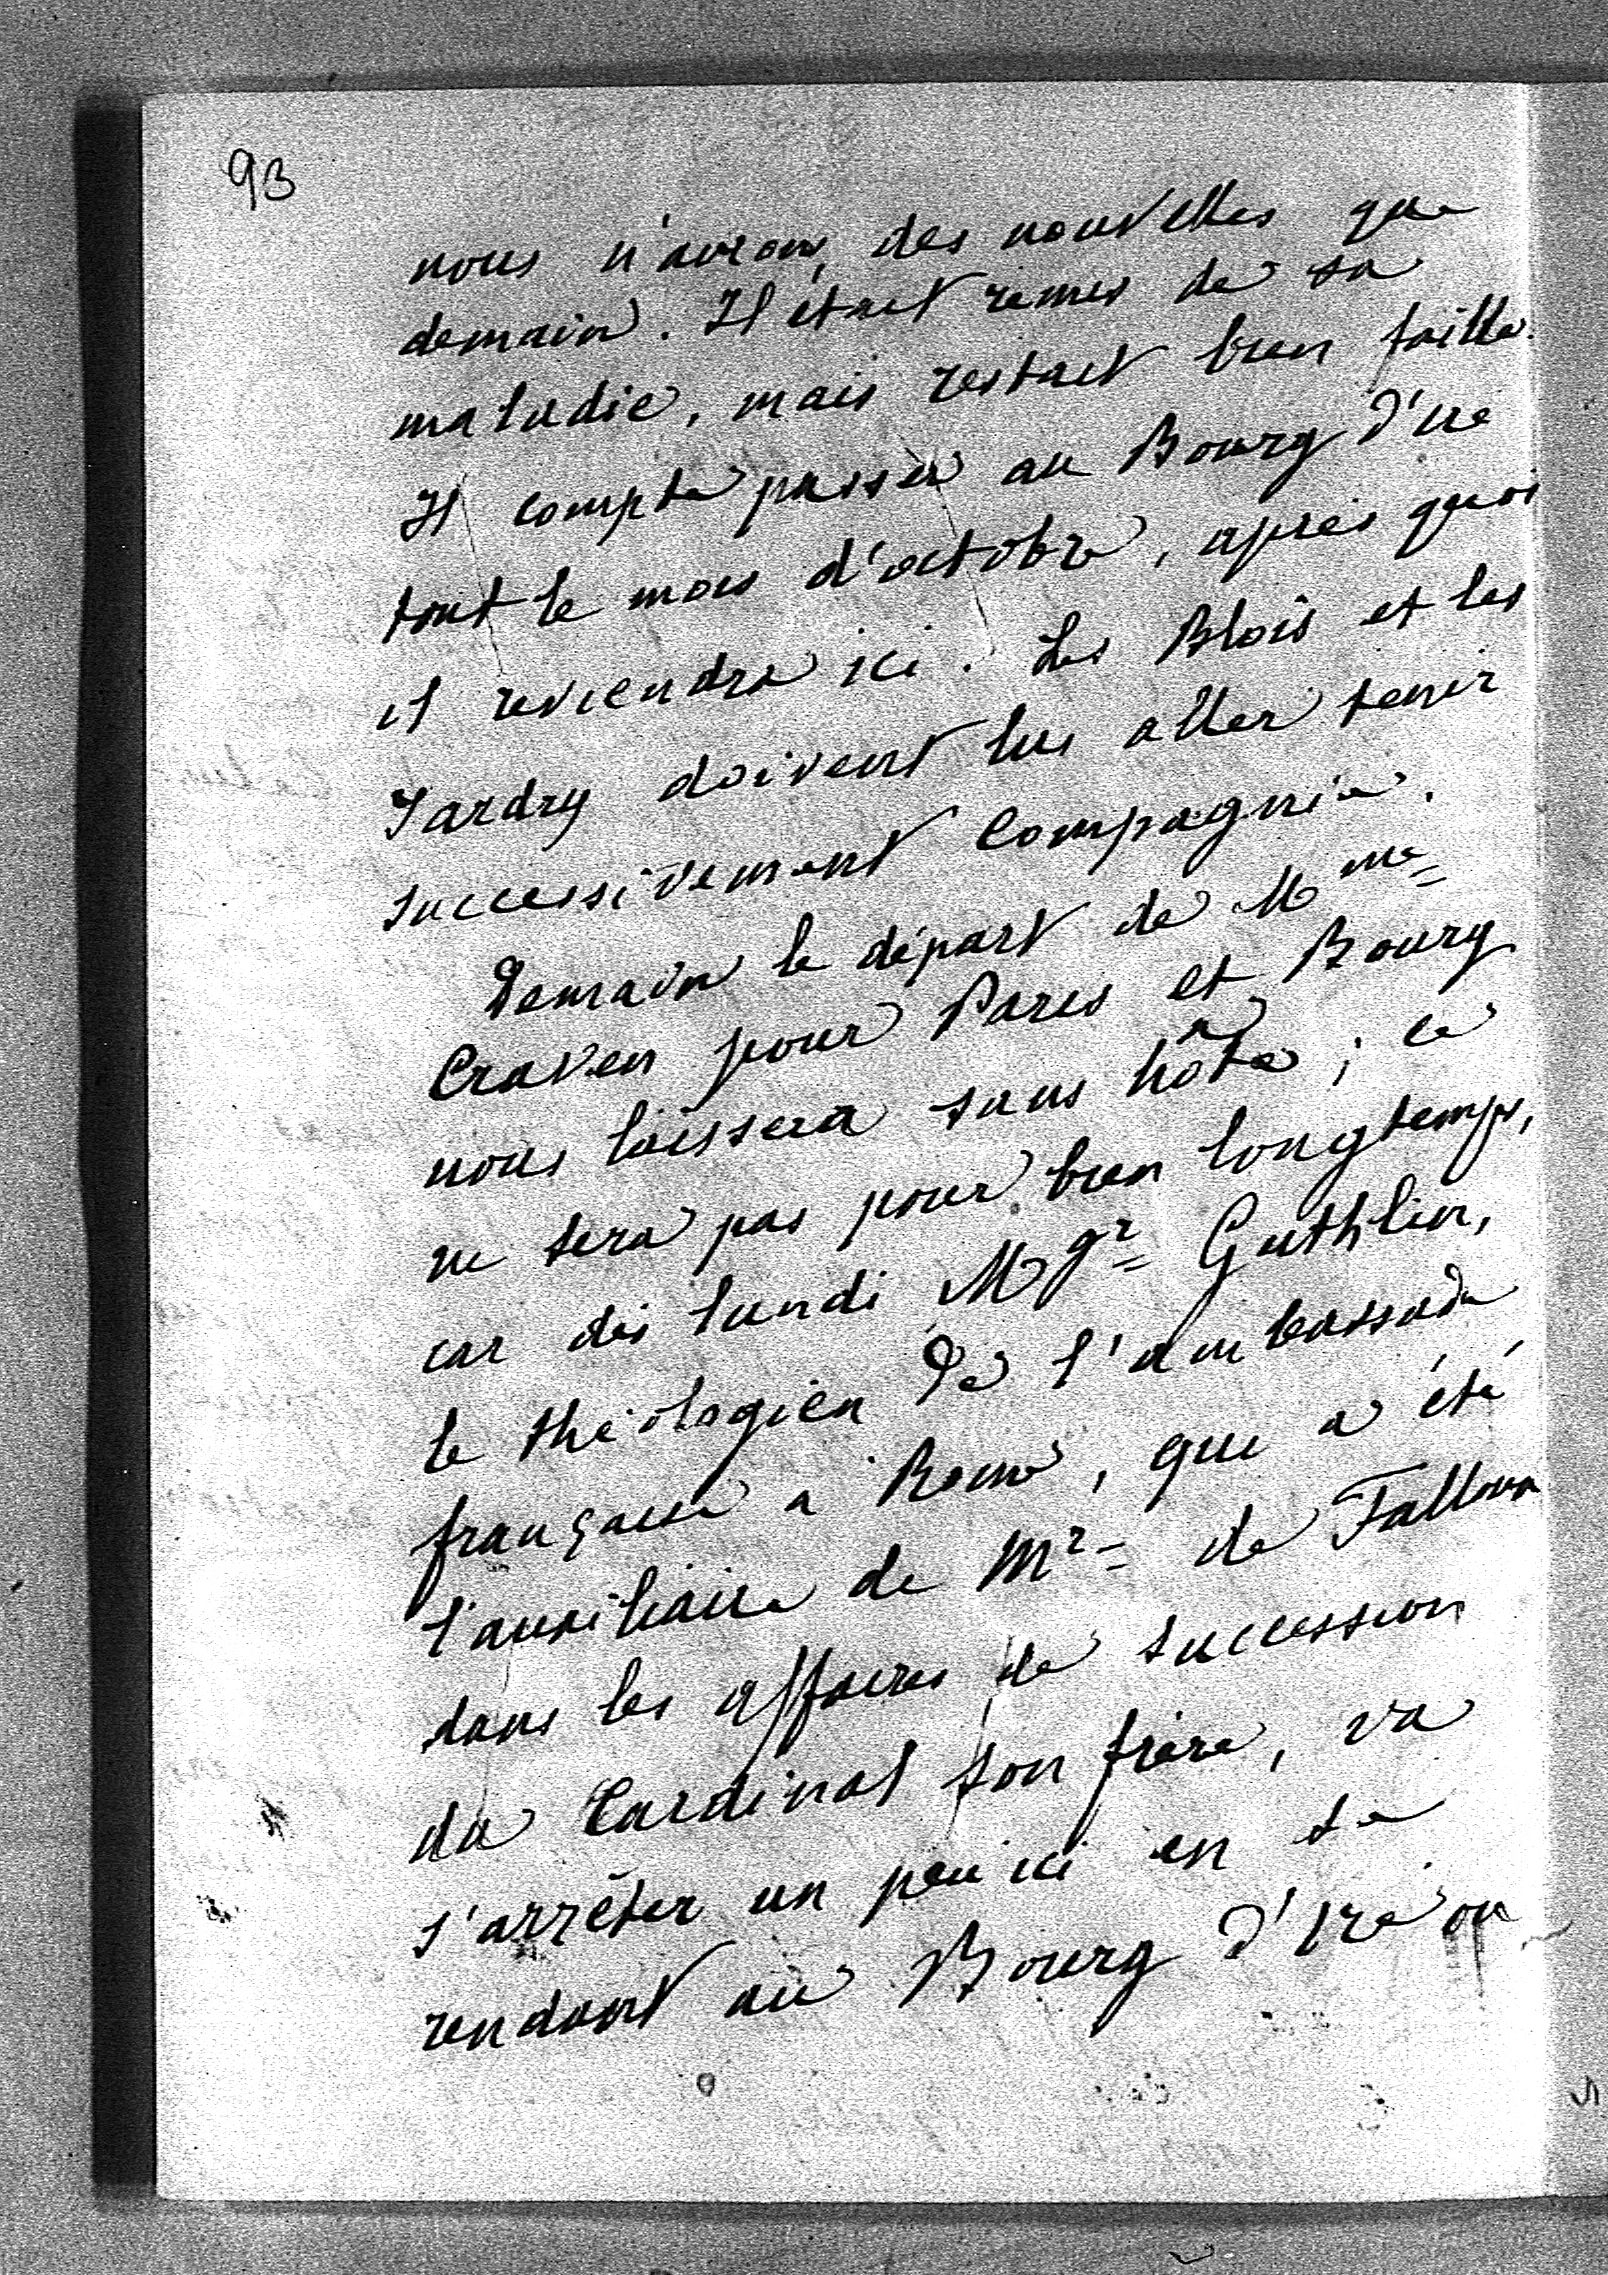 93
nous n'aurons des nouvelles que
demain. Il était remis de sa
maladie, mais restait bien faible.
Il compte passer au Bourg d'Iré
tout le mois d'octobre, après quoi
il reviendra ici. Les Blois et les
Jardry doivent lui aller tenir
successivement compagnie.
Demain le départ de Mme
Craven pour Paris et Bourg
nous laissera sans hôte; ce
ne sera pas pour bien longtemps,
car dès lundi Mgr Guthlin,
le théologien de l'ambassade
française à Rome, qui a été
l'auxiliaire de Mr de Falloux
dans les affaires de succession
du Cardinal son frère, va
s'arrêter un peu ici en se
rendant au Bourg d'Iré où